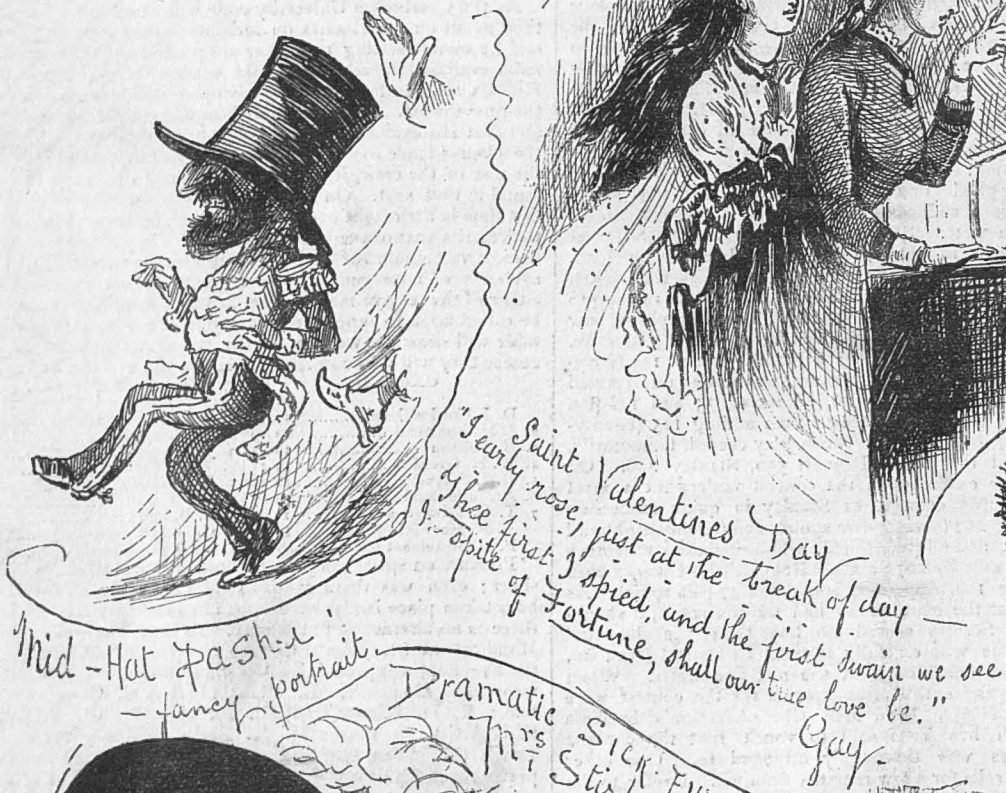 Saint Valentines Day —
"I early rose, just at the break of day —
Thee first I spied, and the first swain we see
In spite of Fortune, shall our true love be."
Gay.
Mid-Hat Pasha.
— fancy portrait.
Dramatic Sick
Mrs